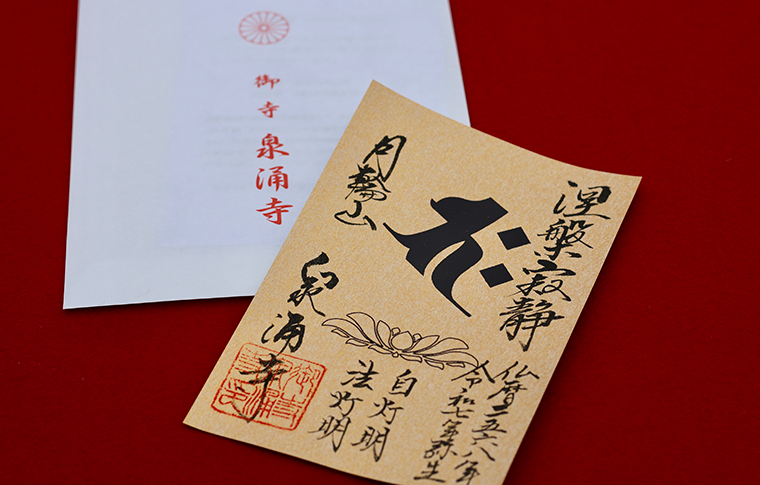 御寺 泉涌寺
涅槃寂静
仏暦二五六八年
令和七年弥生
自灯明
法灯明
月輪山
泉涌寺